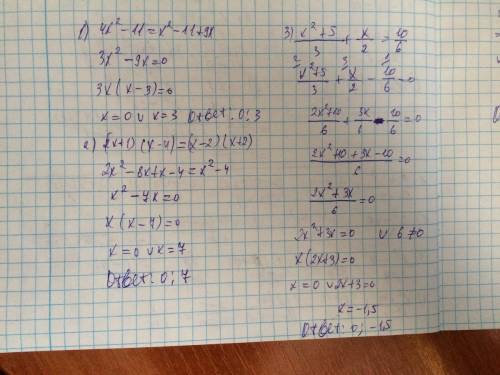 1) 4x² - 11 = x² - 11 + 9x
3x² - 9x = 0
3x(x - 3) = 0
x = 0 ∪ x = 3 Ответ: 0; 3
2) (2x+1)(x-4) = (x-2)(x+2)
2x² - 8x + x - 4 = x² - 4
x² - 7x = 0
x(x - 7) = 0
x = 0 ∪ x = 7
Ответ: 0; 7
3) (x² + 5)/3 + x/2 = 10/6
(x² + 5)/3 + x/2 - 10/6 = 0
(2x² + 10)/6 + 3x/6 - 10/6 = 0
(2x² + 10 + 3x - 10)/6 = 0
(2x² + 3x)/6 = 0
2x² + 3x = 0 ∪ 6 ≠ 0
x(2x + 3) = 0
x = 0 ∪ 2x + 3 = 0
x = -1,5
Ответ: 0; -1,5